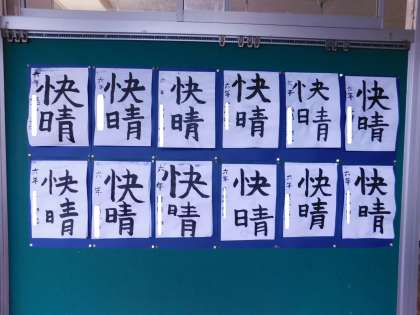 快晴 六年
快晴 六年
快晴 六年
快晴 六年
快晴 六年
快晴 六年
快晴 六年
快晴 六年
快晴 六年
快晴 六年
快晴 六年
快晴 六年